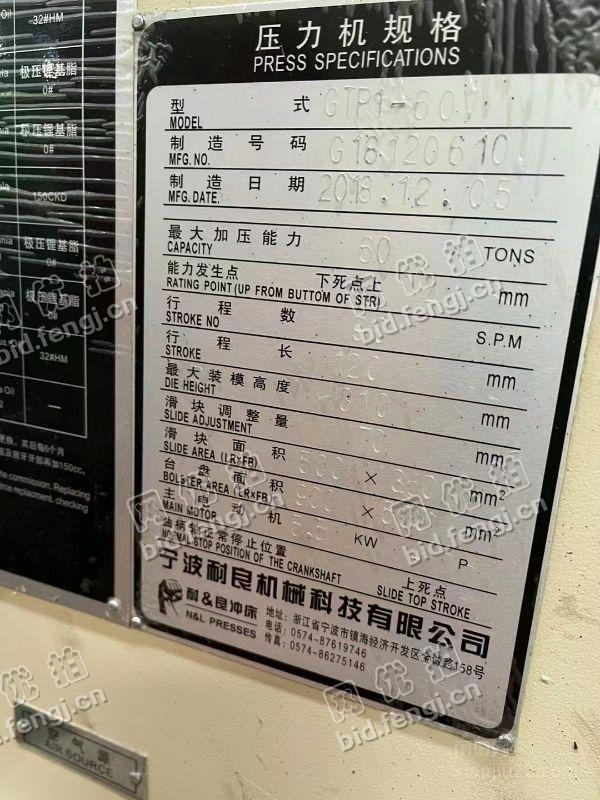 Oil
32#HM
极压锂基脂
0#
极压锂基脂
0#
150CKD
极压锂基脂
0#
极压锂基脂
0#
32#HM
the commission. Replacing
replacement, checking
压力机规格
PRESS SPECIFICATIONS
型 式 GTP1-60
MODEL
制造号码 G18120610
MFG.NO.
制造日期 2018.12.05
MFG.DATE.
最大加压能力 60 TONS
CAPACITY
能力发生点 下死点上 mm
RATING POINT(UP FROM BUTTOM OF STR)
行程数 S.P.M
STROKE NO
行程长 120 mm
STROKE
最大装模高度 310 mm
DIE HEIGHT
滑块调整量 70 mm
SLIDE ADJUSTMENT
滑块面积 500 × mm²
SLIDE AREA (LR×FB)
台盘面积 900 × mm²
BOLSTER AREA (LR×FB)
主电动机 5.5 KW P
MAIN MOTOR
曲柄轴正常停止位置 上死点
NORMAL STOP POSITION OF THE CRANKSHAFT SLIDE TOP STROKE
宁波耐良机械科技有限公司
耐&良冲床
N&L PRESSES
地址: 浙江省宁波市镇海经济开发区金城路158号
电话: 0574-87619746
传真: 0574-86275146
空气源
AIR SOURCE
网优拍
bid.fengj.cn
网优拍
bid.fengj.cn
网优拍
bid.fengj.cn
网优拍
bid.fengj.cn
网优拍
bid.fengj.cn
网优拍
bid.fengj.cn